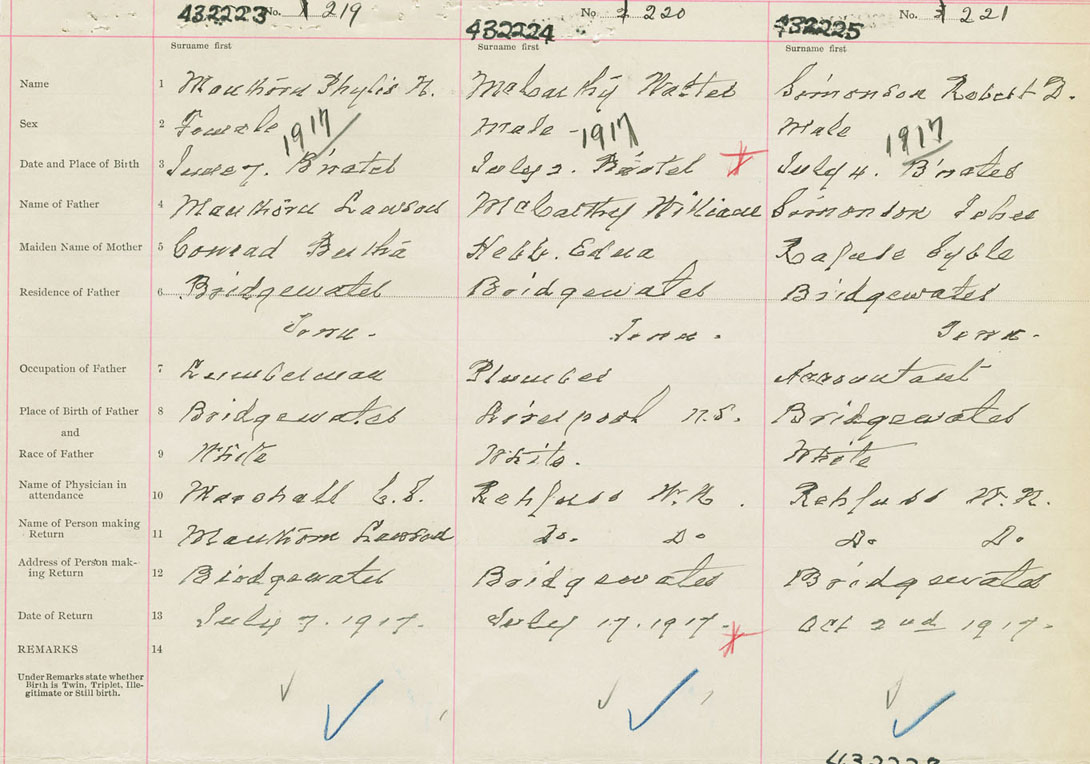 432223 No. 219 432224 No 220 432225 No. 221
Surname first Surname first Surname first
Name 1 Mauthorn Phylis H. McCarthy Walter Simonson Robert D.
Sex 2 Female Male Male
1917 1917 1917
Date and Place of Birth 3 June 7. B'water July 2. B'water July 4. B'water
Name of Father 4 Mauthorn Lawson McCarthy William Simonson John
Maiden Name of Mother 5 Conrad Bertha Hebb. Edna Rafuse
Residence of Father 6 Bridgewater Bridgewater Bridgewater
Town. Town. Town.
Occupation of Father 7 Lumberman Plumber Accountant
Place of Birth of Father 8 Bridgewater Liverpool N.S. Bridgewater
and
Race of Father 9 White White. White
Name of Physician in
attendance 10 Marshall Rehfuss W. N. Rehfuss W. N.
Name of Person making
Return 11 Mauthorn Lawson Do. Do Do Do
Address of Person mak-
ing Return 12 Bridgewater Bridgewater Bridgewater
Date of Return 13 July 7. 1917. July 17. 1917. Oct 2nd 1917.
REMARKS 14
Under Remarks state whether
Birth is Twin, Triplet, Ille-
gitimate or Still birth.